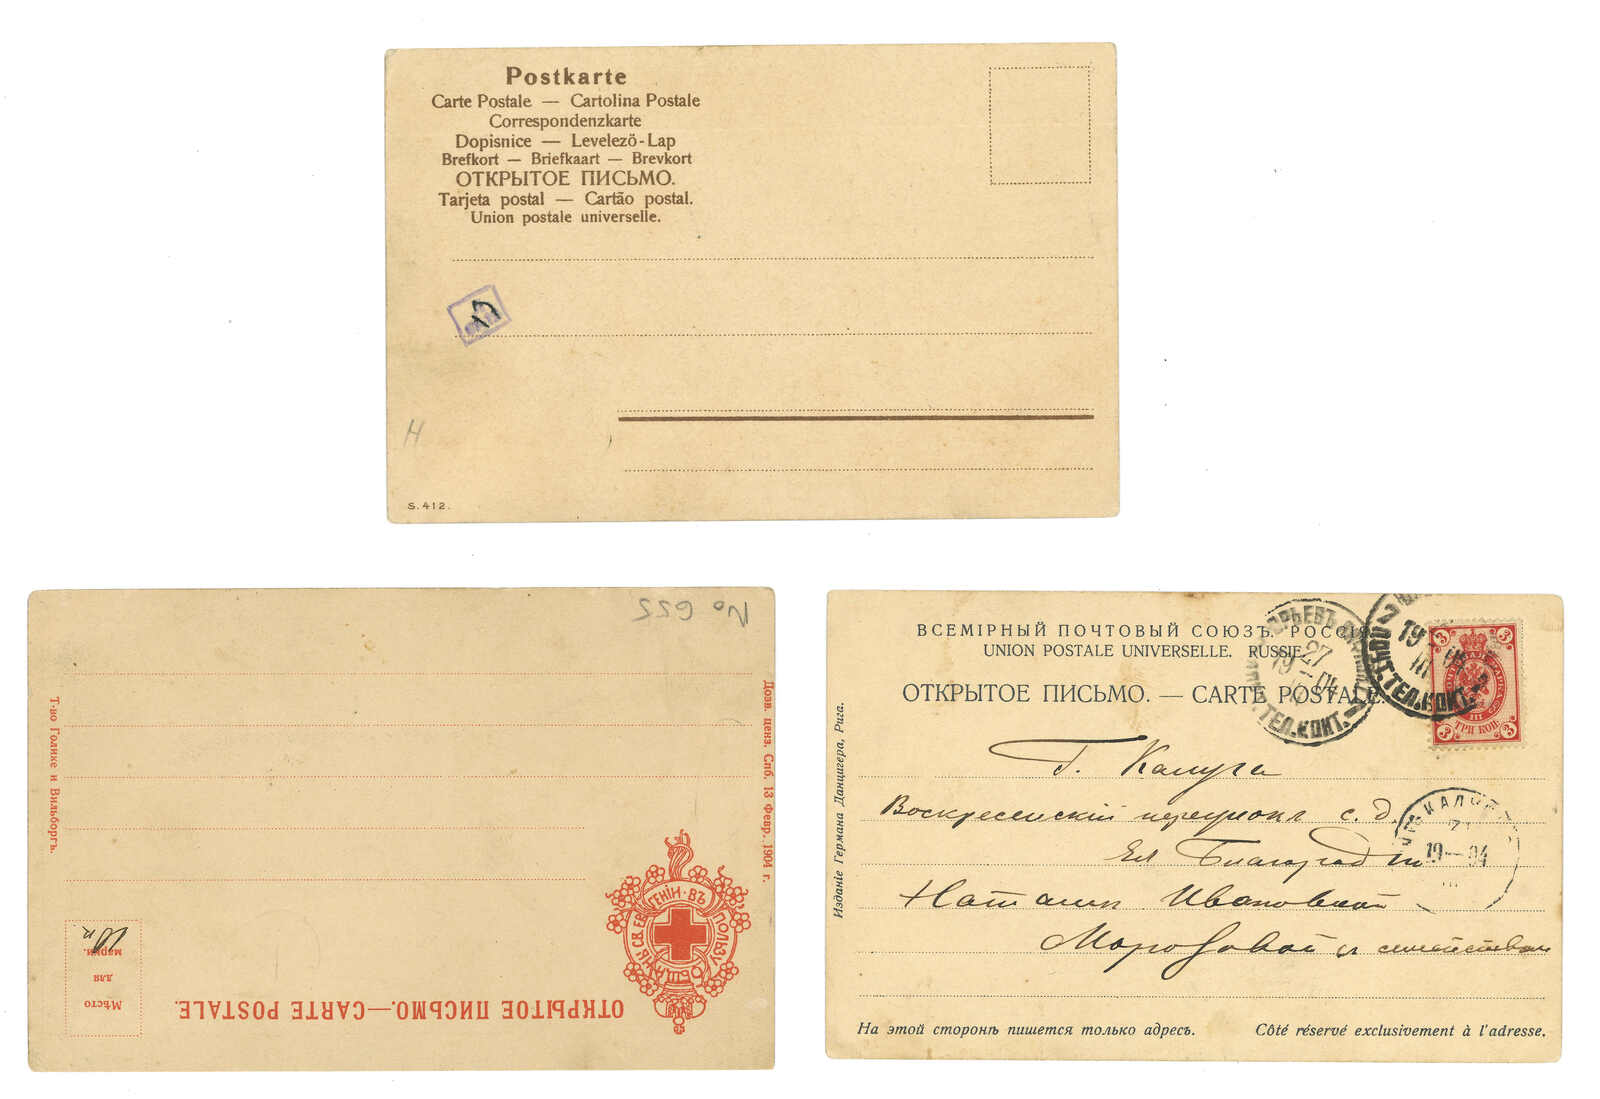 Postkarte
Carte Postale — Cartolina Postale
Correspondenzkarte
Dopisnice — Levelező-Lap
Brefkort — Briefkaart — Brevkort
ОТКРЫТОЕ ПИСЬМО.
Tarjeta postal — Cartão postal.
Union postale universelle.
H
S. 412.
No 655
Т-во Голике и Вильборгъ.
Дозв. ценз. Спб. 13 Февр. 1904 г.
ВЪ ПОЛЬЗУ ОБЩИНЫ СВ. ЕВГЕНІИ
ОТКРЫТОЕ ПИСЬМО.—CARTE POSTALE.
Мѣсто
для
марки.
10 к
ВСЕМІРНЫЙ ПОЧТОВЫЙ СОЮЗЪ. РОССІЯ.
UNION POSTALE UNIVERSELLE. RUSSIE.
ОТКРЫТОЕ ПИСЬМО. — CARTE POSTALE.
27
ТЕЛ.КОНТ.
ПОЧТ.ТЕЛ.КОНТ.
3 3
ТРИ КОП.
3 3
Изданіе Германа Данцигера, Рига.
Г. Калуга
Воскресенскій переулокъ с. д.
Ея Благородію
Наталіи Ивановной
Морозовой съ семействомъ
КАЛУГА
19—04
На этой сторонѣ пишется только адресъ.
Côté réservé exclusivement à l'adresse.